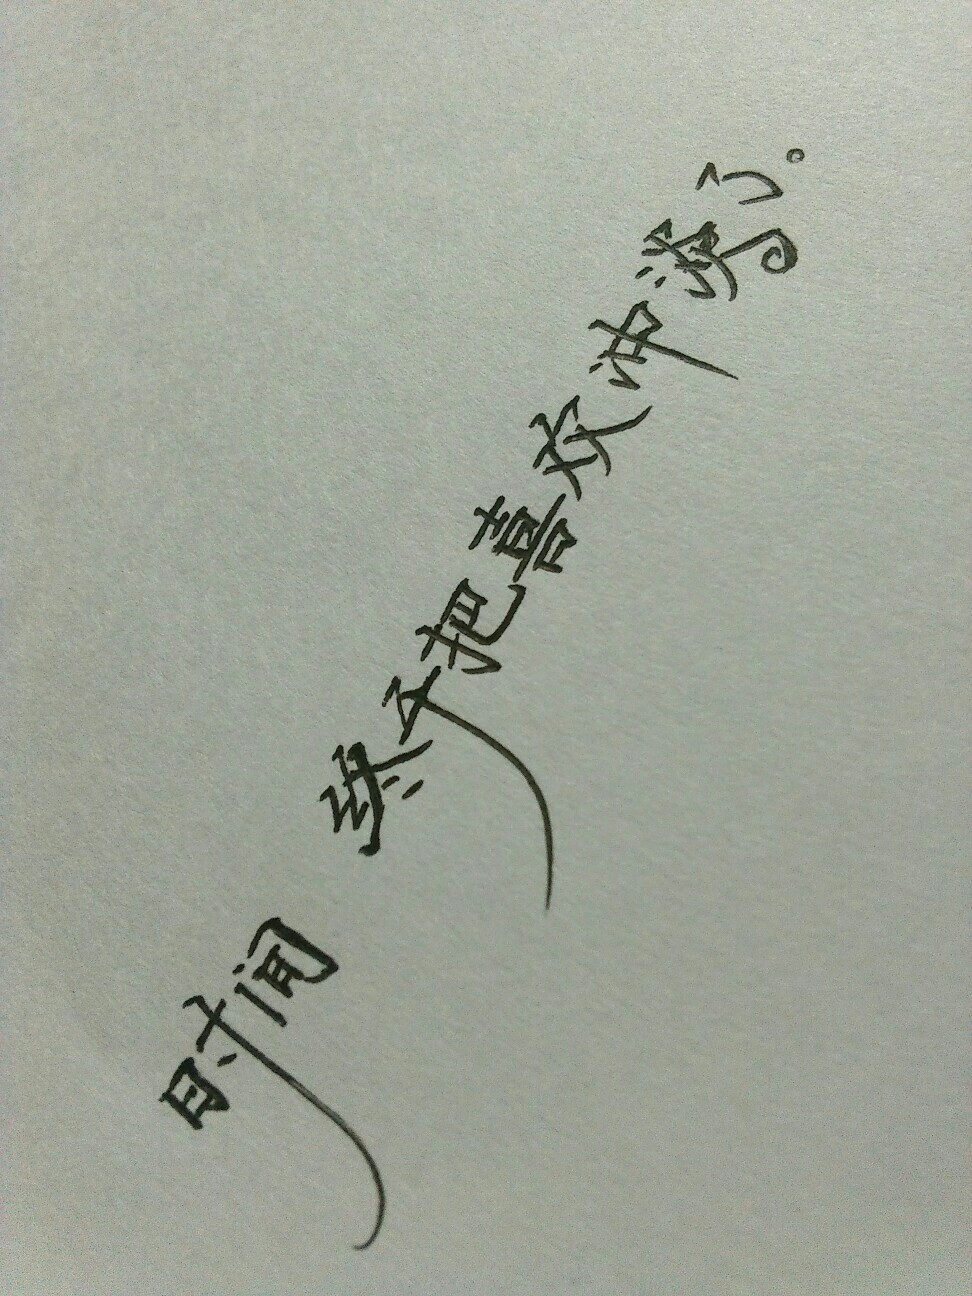 时间 终于把喜欢冲淡了。